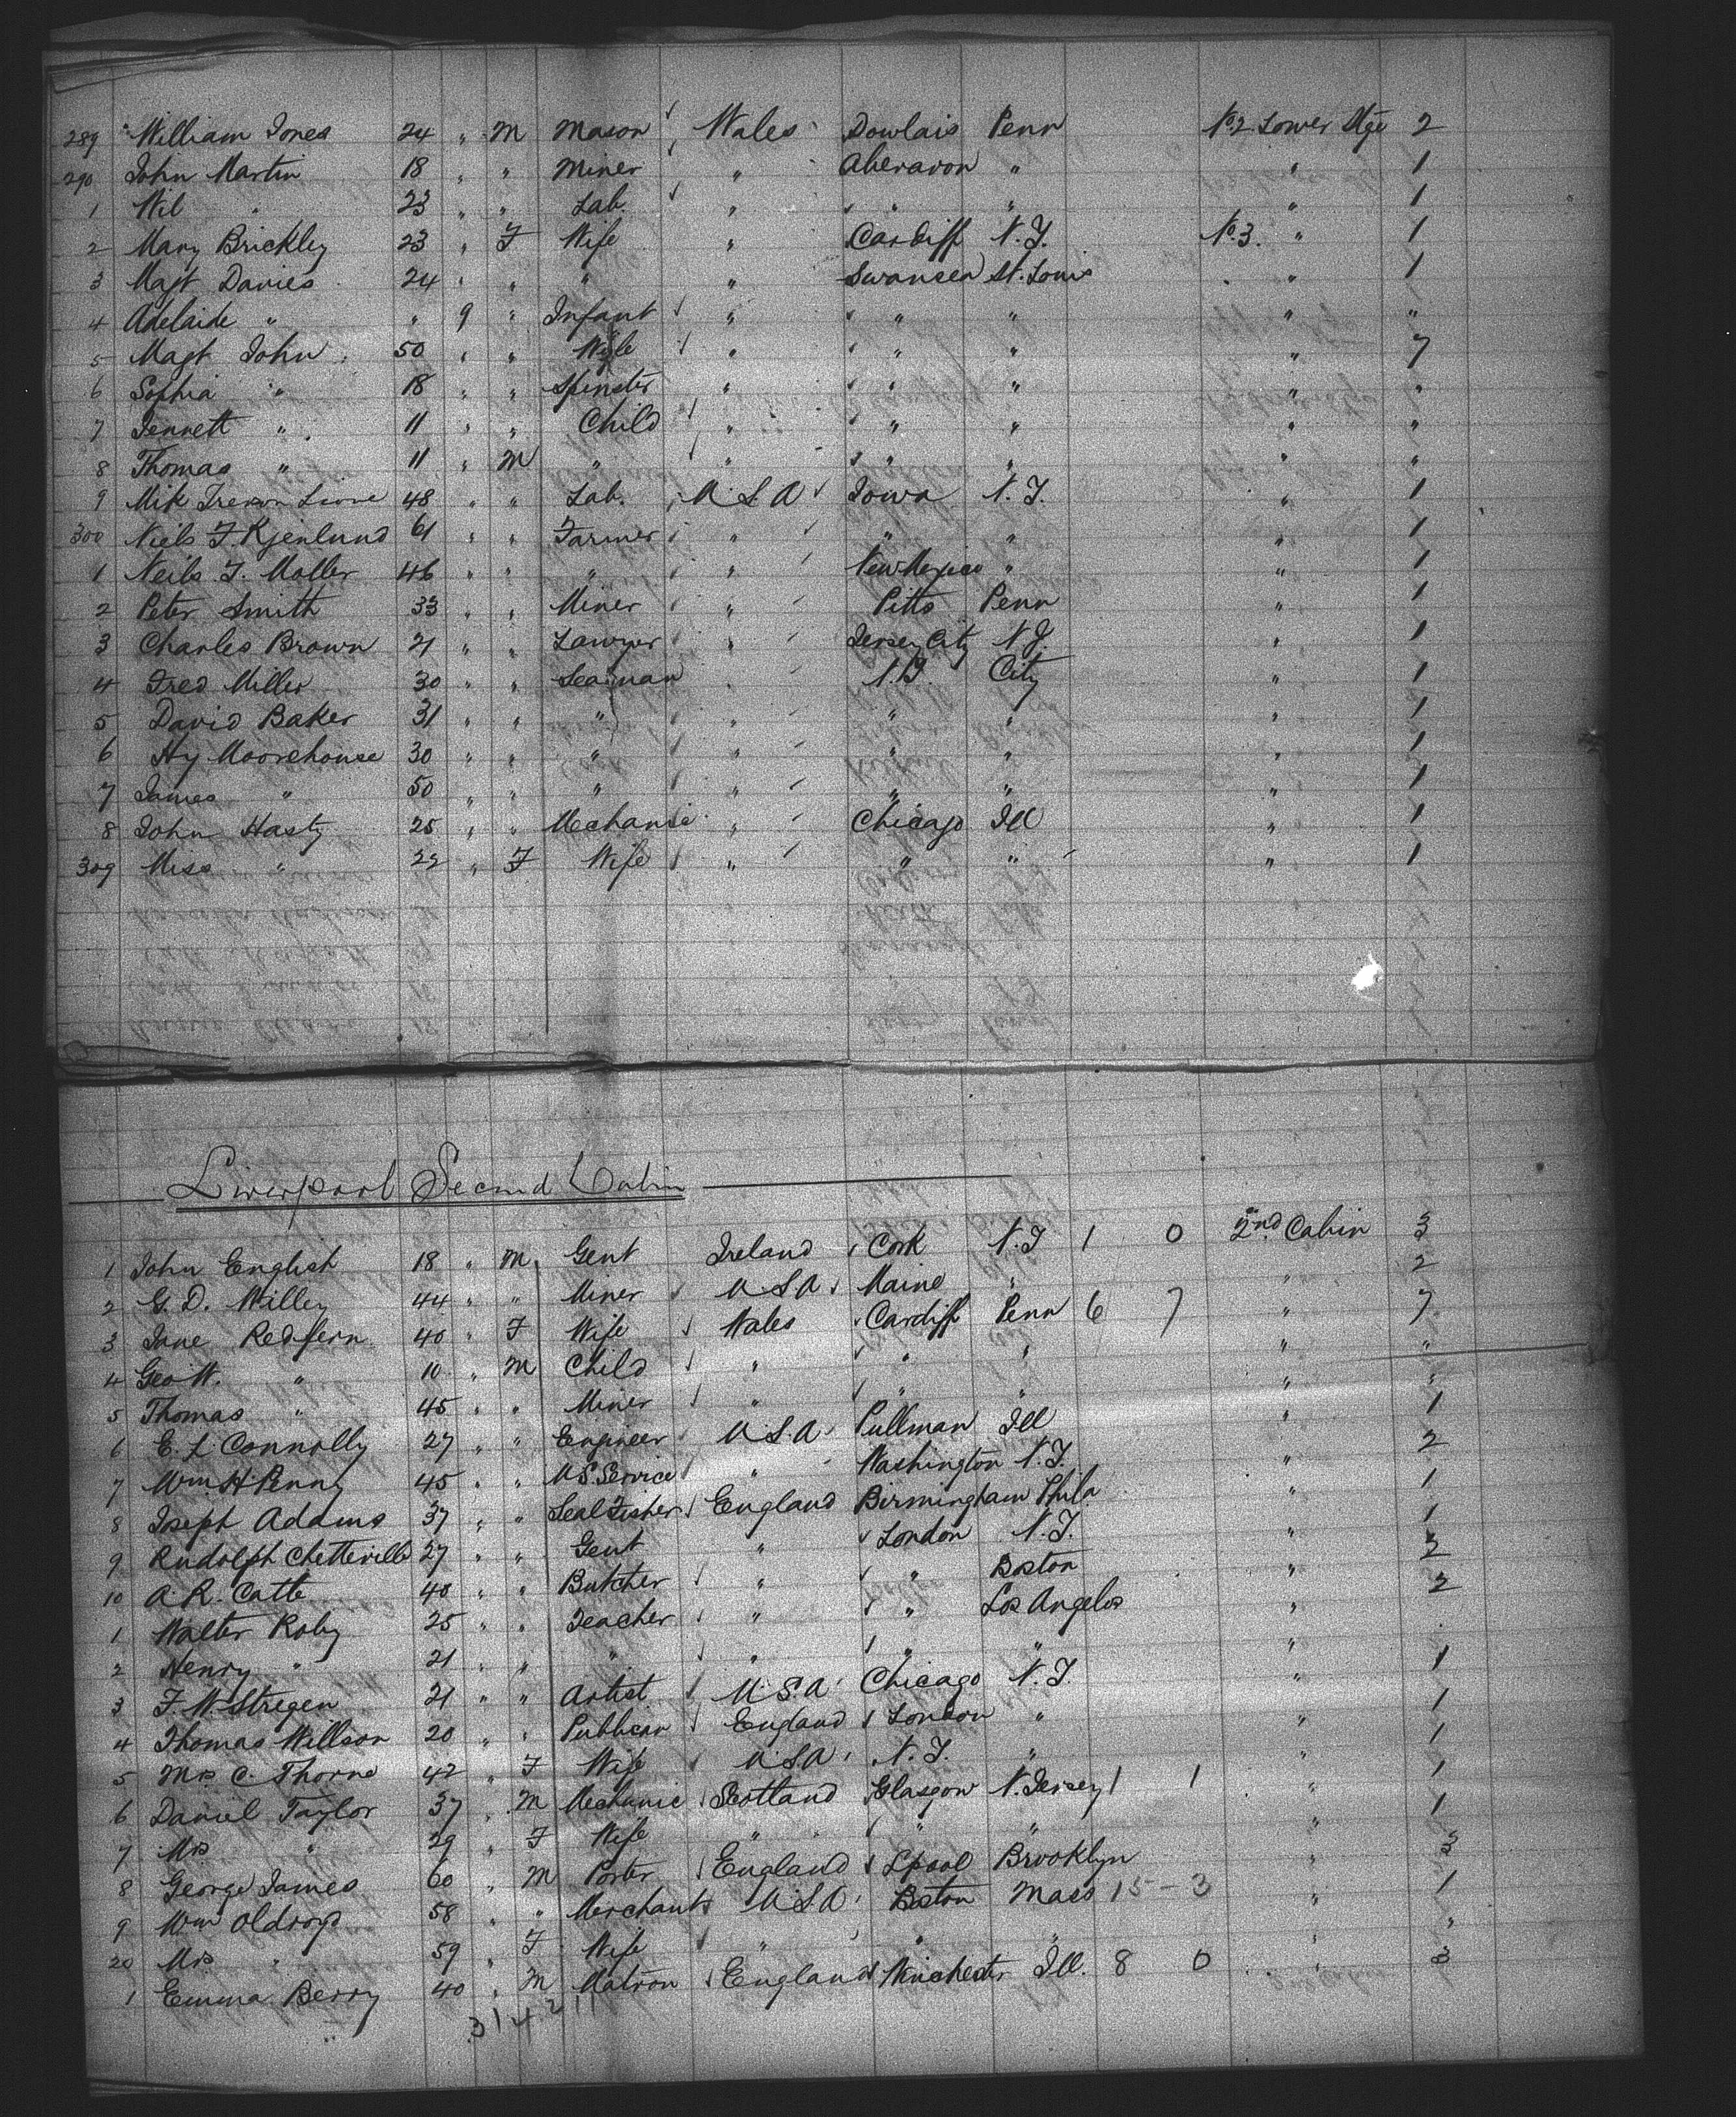 289 William Jones 24 " M Mason Wales Dowlais Penn No 2 Lower Stge 2
290 John Martin 18 " " Miner " Aberavon " " 1
1 Wil " 23 " " Lab. " " " " 1
2 Mary Brickley 23 " F Wife " Cardiff N.Y. No 3. " 1
3 Magt Davies 24 " " " " Swansea St. Louis " 1
4 Adelaide " " 9 " Infant " " " " "
5 Magt John 50 " " Wife " " " " 7
6 Sophia " 18 " " Spinster " " " " "
7 Jennett " 11 " " Child " " " " "
8 Thomas " 11 " M " " " " " "
9 Mik 48 " " Lab. U.S.A Iowa N.Y. " 1
300 Niels F. Kjenlund 61 " " Farmer " " " " 1
1 Neils J. Moller 46 " " " " New Mexico " " 1
2 Peter Smith 33 " " Miner " Pitts Penn " 1
3 Charles Brown 21 " " Lawyer " Jersey City N.J. " 1
4 Fred Miller 30 " " Seaman " N.Y. City " 1
5 David Baker 31 " " " " " " " 1
6 Hy Moorehouse 30 " " " " " " " 1
7 James " 50 " " " " " " " 1
8 John Hasty 25 " " Mechanic " Chicago Ill " 1
309 Miss " 22 " F Wife " " " " 1
Liverpool Second Cabin
1 John English 18 " M Gent Ireland Cork N.Y 1 0 2nd Cabin 3
2 G. D. Willey 44 " " Miner U.S.A. Maine " " 2
3 Jane Redfern 40 " F Wife Wales Cardiff Penn 6 7 " 7
4 Geo W. " 10 " M Child " " " " "
5 Thomas " 45 " " Miner " " " " "
6 E. L. Connolly 27 " " Engineer U.S.A. Pullman Ill " 1
7 Wm H. Penny 45 " " U.S. Service " Washington N.Y. " 2
8 Joseph Adams 37 " " Seal Fisher England Birmingham Phila " 1
9 Rudolph Chetteville 27 " " Gent " London N.Y. " 1
10 A. R. Catte 40 " " Butcher " " Boston " 2
1 Walter Roby 25 " " Teacher " " Los Angelos " 2
2 Henry " 21 " " " " " " "
3 F. W. Stregen 21 " " Artist U.S.A. Chicago N.Y. " 1
4 Thomas Willson 20 " " Publican England London " " 1
5 Mrs C. Thorne 42 " F Wife U.S.A. N.Y. " " 1
6 Daniel Taylor 37 " M Mechanic Scotland Glasgow N. Jersey 1 1 " 1
7 Mrs " 29 " F Wife " " " " 1
8 George James 60 " M Porter England Lpool Brooklyn " 3
9 Wm Oldroyd 58 " " Merchant U.S.A. Boston Mass 15 - 3 " 1
20 Mrs " 59 " F Wife " " " " "
1 Emma Berry 40 " M Matron England Winchester Ill. 8 0 " 3